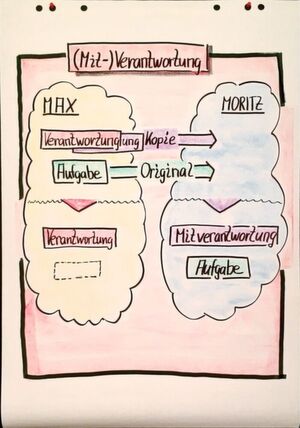 (Mit-)Verantwortung
MAX
MORITZ
Verantwortung Kopie
Aufgabe Original
Verantwortung
Mitverantwortung
Aufgabe